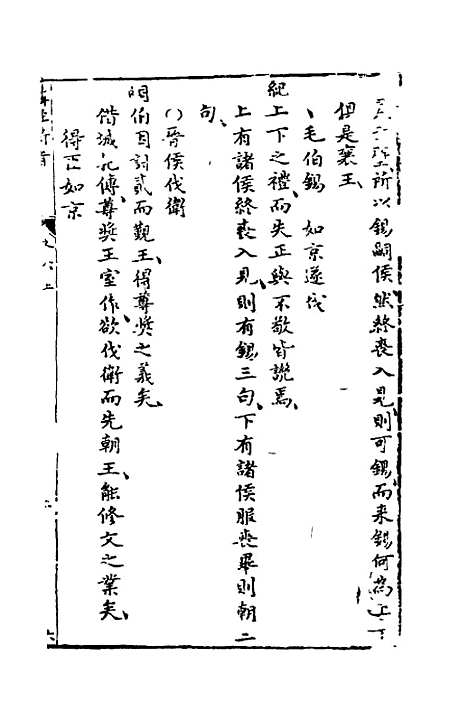 所以錫嗣侯然終喪入見則可錫而來錫何為上下
但是襄王
毛伯錫 如京遂伐
紀上下之禮而失正與不敬皆譏焉
上有諸侯終喪入見則有錫三句下有諸侯服喪畢則朝二
句
〇晉侯伐衛
胡伯因討貳而覲王得尊奬之義矣
僭城汎傳尊奬王室作欲伐衛而先朝王能修文之業矣
得正如京